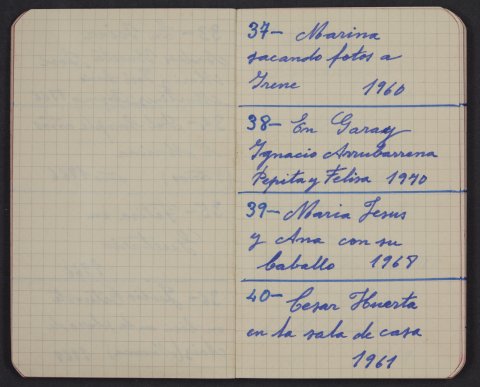 37- Marina
sacando fotos a
Irene 1960
38- En Garay
Ignacio Arrubarrena
Pepita y Felisa 1970
39- Maria Jesus
y Ana con su
Caballo 1968
40- Cesar Huerta
en la sala de casa
1961